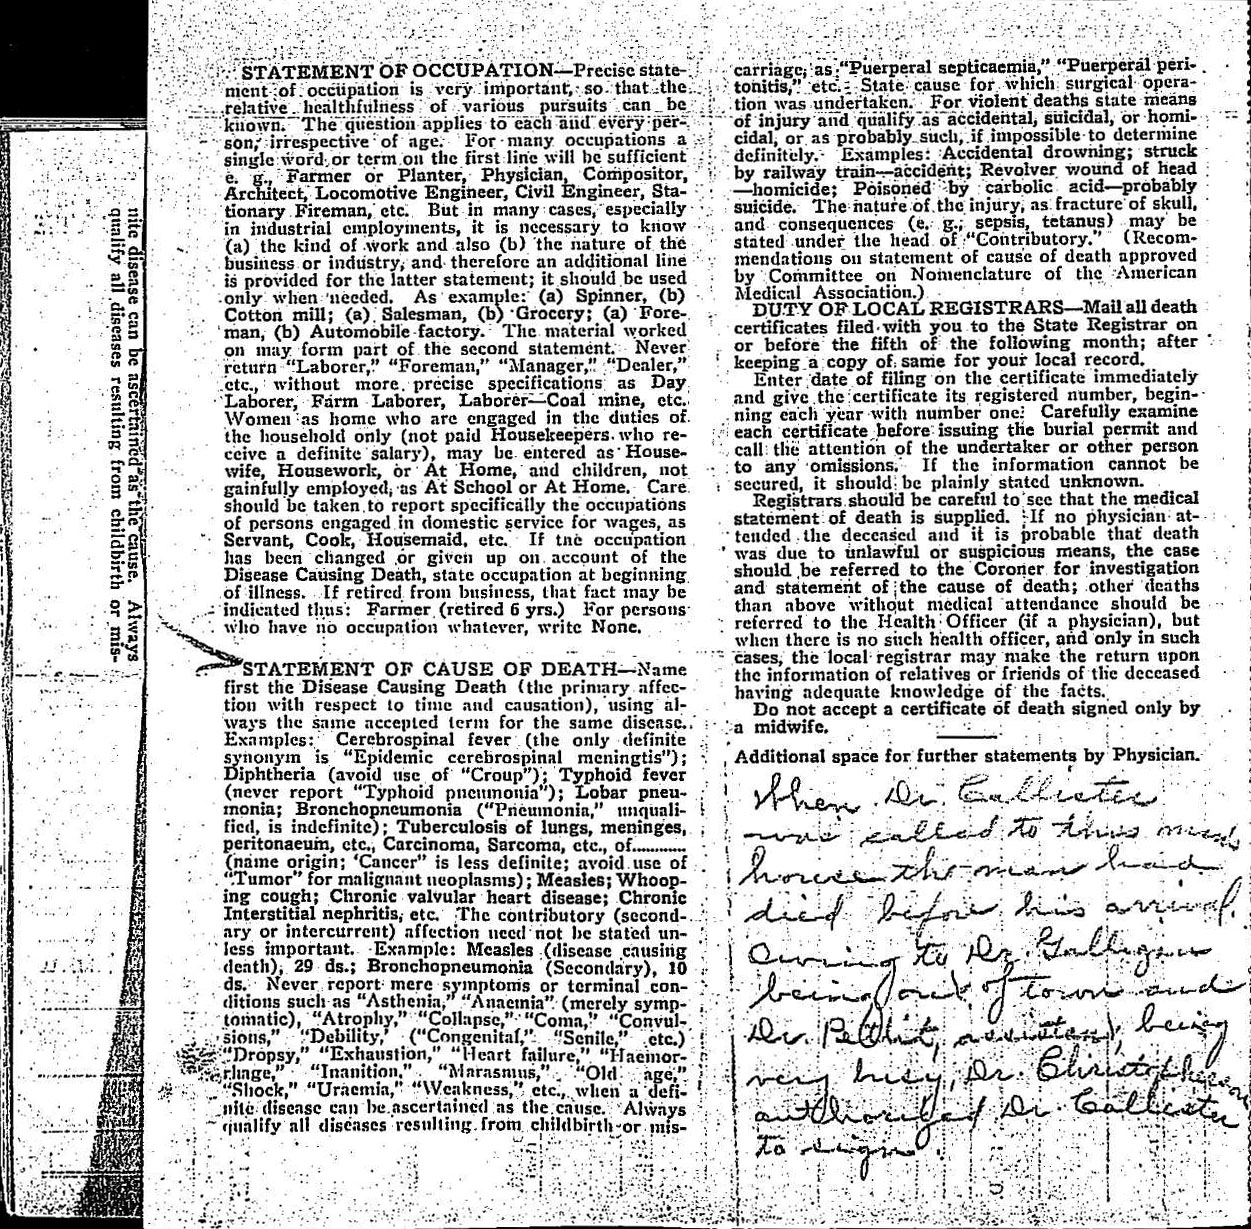 STATEMENT OF OCCUPATION—Precise state-
ment of occupation is very important, so that the
relative healthfulness of various pursuits can be
known. The question applies to each and every per-
son, irrespective of age. For many occupations a
single word or term on the first line will be sufficient
e. g., Farmer or Planter, Physician, Compositor,
Architect, Locomotive Engineer, Civil Engineer, Sta-
tionary Fireman, etc. But in many cases, especially
in industrial employments, it is necessary to know
(a) the kind of work and also (b) the nature of the
business or industry, and therefore an additional line
is provided for the latter statement; it should be used
only when needed. As example: (a) Spinner, (b)
Cotton mill; (a) Salesman, (b) Grocery; (a) Fore-
man, (b) Automobile factory. The material worked
on may form part of the second statement. Never
return "Laborer," "Foreman," "Manager," "Dealer,"
etc., without more precise specifications as Day
Laborer, Farm Laborer, Laborer—Coal mine, etc.
Women as home who are engaged in the duties of
the household only (not paid Housekeepers who re-
ceive a definite salary), may be entered as House-
wife, Housework, or At Home, and children, not
gainfully employed, as At School or At Home. Care
should be taken to report specifically the occupations
of persons engaged in domestic service for wages, as
Servant, Cook, Housemaid, etc. If the occupation
has been changed or given up on account of the
Disease Causing Death, state occupation at beginning
of illness. If retired from business, that fact may be
indicated thus: Farmer (retired 6 yrs.) For persons
who have no occupation whatever, write None.
STATEMENT OF CAUSE OF DEATH—Name
first the Disease Causing Death (the primary affec-
tion with respect to time and causation), using al-
ways the same accepted term for the same disease.
Examples: Cerebrospinal fever (the only definite
synonym is "Epidemic cerebrospinal meningtis");
Diphtheria (avoid use of "Croup"); Typhoid fever
(never report "Typhoid pneumonia"); Lobar pneu-
monia; Bronchopneumonia ("Pneumonia," unquali-
fied, is indefinite); Tuberculosis of lungs, meninges,
peritonaeum, etc., Carcinoma, Sarcoma, etc., of............
(name origin; 'Cancer" is less definite; avoid use of
"Tumor" for malignant neoplasms); Measles; Whoop-
ing cough; Chronic valvular heart disease; Chronic
Interstitial nephritis, etc. The contributory (second-
ary or intercurrent) affection need not be stated un-
less important. Example: Measles (disease causing
death), 29 ds.; Bronchopneumonia (Secondary), 10
ds. Never report mere symptoms or terminal con-
ditions such as "Asthenia," "Anaemia" (merely symp-
tomatic), "Atrophy," "Collapse," "Coma," "Convul-
sions," "Debility,' ("Congenital," "Senile," etc.)
"Dropsy," "Exhaustion," "Heart failure," "Haemor-
rhage," "Inanition," "Marasmus," "Old age,"
"Shock," "Uraemia," "Weakness," etc., when a defi-
nite disease can be ascertained as the cause. Always
qualify all diseases resulting from childbirth or mis-
carriage, as "Puerperal septicaemia," "Puerperal peri-
tonitis," etc. State cause for which surgical opera-
tion was undertaken. For violent deaths state means
of injury and qualify as accidental, suicidal, or homi-
cidal, or as probably such, if impossible to determine
definitely. Examples: Accidental drowning; struck
by railway train—accident; Revolver wound of head
—homicide; Poisoned by carbolic acid—probably
suicide. The nature of the injury, as fracture of skull,
and consequences (e. g., sepsis, tetanus) may be
stated under the head of "Contributory." (Recom-
mendations on statement of cause of death approved
by Committee on Nomenclature of the American
Medical Association.)
DUTY OF LOCAL REGISTRARS—Mail all death
certificates filed with you to the State Registrar on
or before the fifth of the following month; after
keeping a copy of same for your local record.
Enter date of filing on the certificate immediately
and give the certificate its registered number, begin-
ning each year with number one. Carefully examine
each certificate before issuing the burial permit and
call the attention of the undertaker or other person
to any omissions. If the information cannot be
secured, it should be plainly stated unknown.
Registrars should be careful to see that the medical
statement of death is supplied. If no physician at-
tended the deceased and it is probable that death
was due to unlawful or suspicious means, the case
should be referred to the Coroner for investigation
and statement of the cause of death; other deaths
than above without medical attendance should be
referred to the Health Officer (if a physician), but
when there is no such health officer, and only in such
cases, the local registrar may make the return upon
the information of relatives or friends of the deceased
having adequate knowledge of the facts.
Do not accept a certificate of death signed only by
a midwife.
Additional space for further statements by Physician.
When Dr. Callister
was called to this man's
house the man had
died before his arrival.
Owing to Dr. Galligan
being out of town and
Dr. Pettit, assistant, being
very busy, Dr. Christopherson
authorized Dr. Callister
to sign.
nite disease can be ascertained as the cause. Always
qualify all diseases resulting from childbirth or mis-